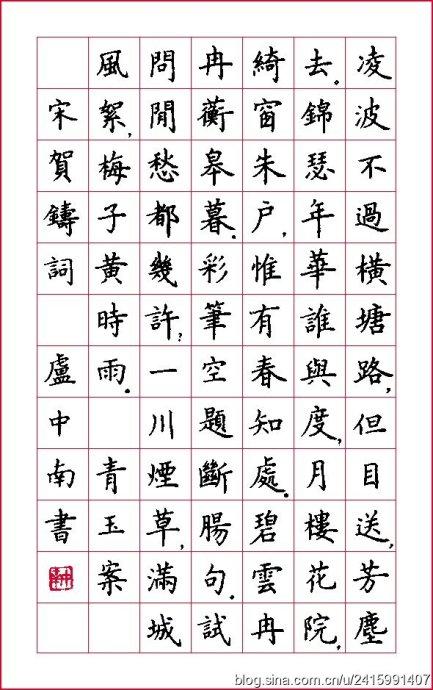 凌波不過橫塘路,但目送,芳塵
去。錦瑟年華誰與度,月樓花院,
綺窗朱戶,惟有春知處。碧雲冉
冉蘅皋暮。彩筆空題斷腸句。試
問閒愁都幾許;一川煙草,滿城
風絮,梅子黃時雨。 青玉案
宋賀鑄詞 盧中南書
blog.sina.com.cn/u/2415991407